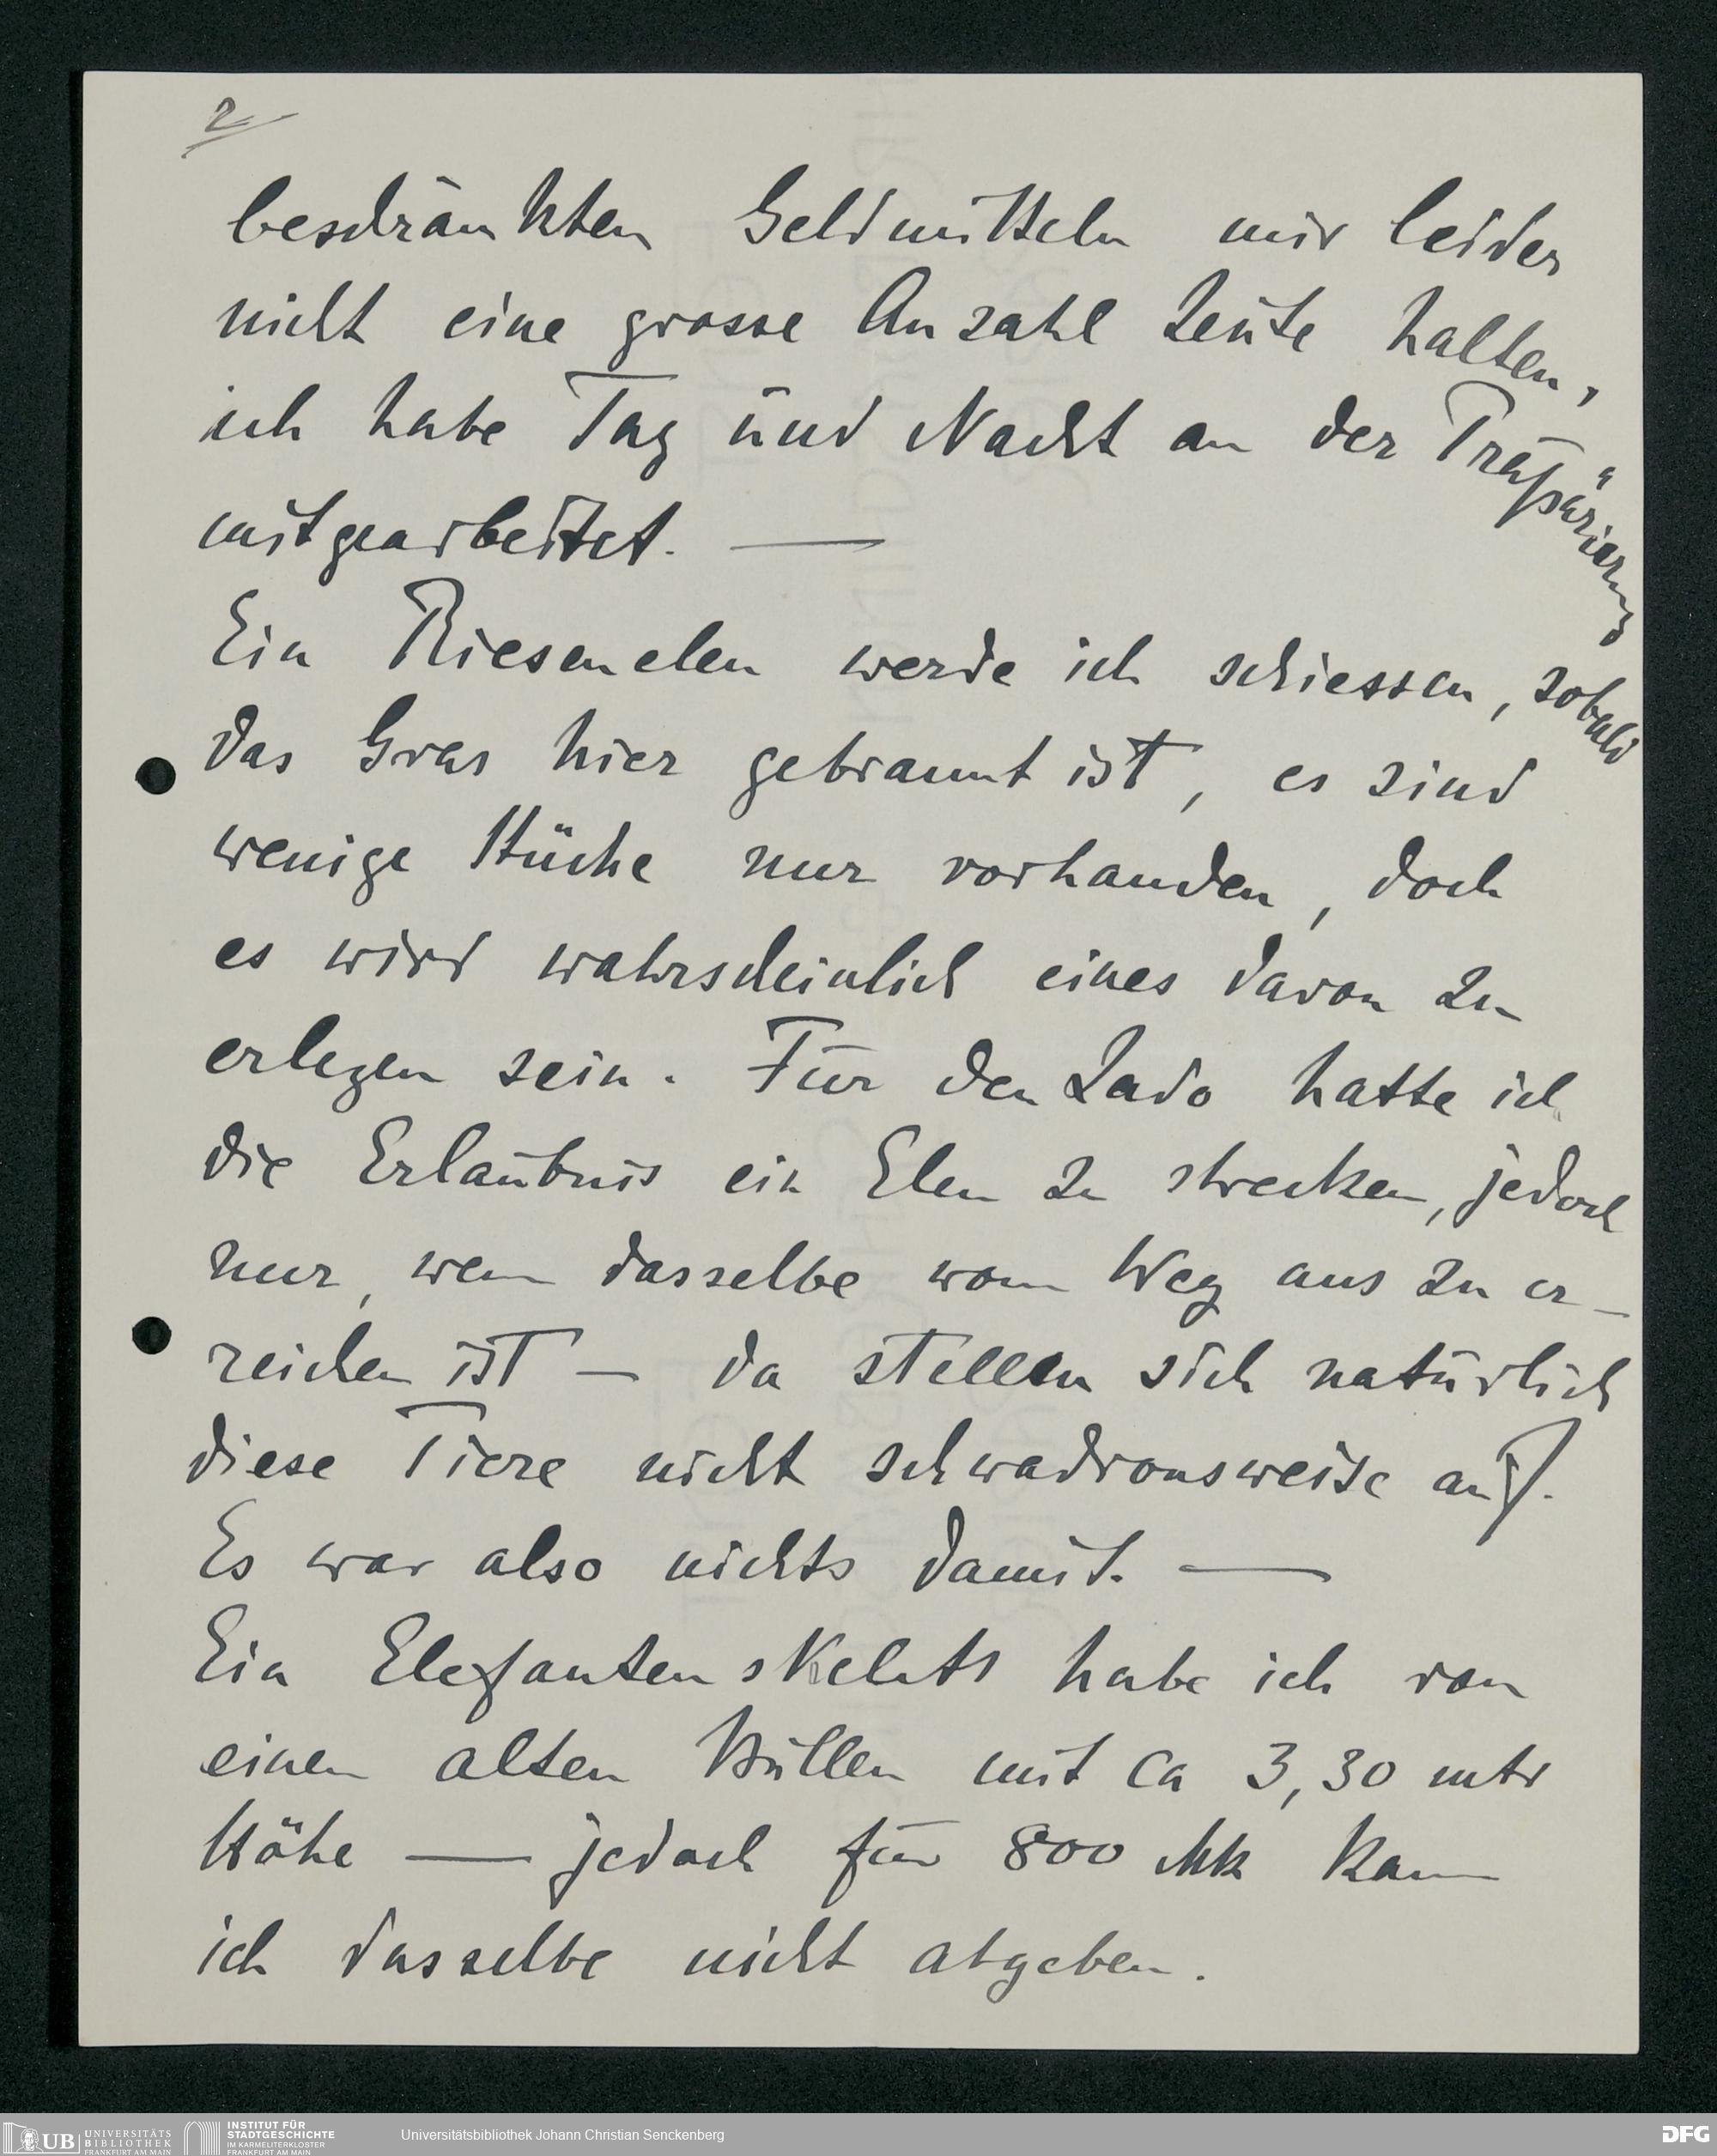 2
beschränkten Geldmitteln mir leider
nicht eine grosse Anzahl Leute halten,
ich habe Tag und Nacht an der Präparierung
mitgearbeitet. —
Ein Riesenelen werde ich schiessen, sobald
das Gras hier gebrannt ist, es sind
wenige Stücke nur vorhanden, doch
es wird wahrscheinlich eines davon zu
erlegen sein. Für den Lado hatte ich
die Erlaubnis ein Elen zu strecken, jedoch
nur, wenn dasselbe vom Weg aus zu er-
reichen ist — da stellen sich natürlich
diese Tiere nicht schwadronsweise auf.
Es war also nichts damit. —
Ein Elefantenskelett habe ich von
einem alten Bullen mit ca 3,30 mtr
Höhe — jedoch für 800 Mk kann
ich dasselbe nicht abgeben.
UB UNIVERSITÄTS
BIBLIOTHEK
FRANKFURT AM MAIN
INSTITUT FÜR
STADTGESCHICHTE
IM KARMELITERKLOSTER
FRANKFURT AM MAIN
Universitätsbibliothek Johann Christian Senckenberg
DFG